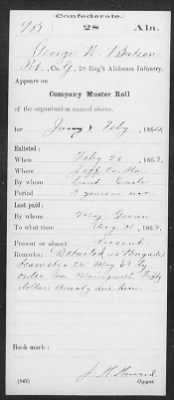 Confederate.
28 Ala.
George W. Batson
Pvt., Co. G, 28 Reg't Alabama Infantry.
Appears on
Company Muster Roll
of the organization named above,
for Jany & Feby, 1864.
Enlisted:
When Feby 20, 1863.
Where Jeff Co. Ala.
By whom Lieut
Period 3 years or war
Last paid:
By whom Maj.
To what time Aug 31, 1863.
Present or absent Present
Remarks: Detailed as Brigade
Teamster 25 May 63 by
order Gen Manigault Fifty
dollars Bounty due him.
Book mark:
J. H. Howard
(642) Copyist.